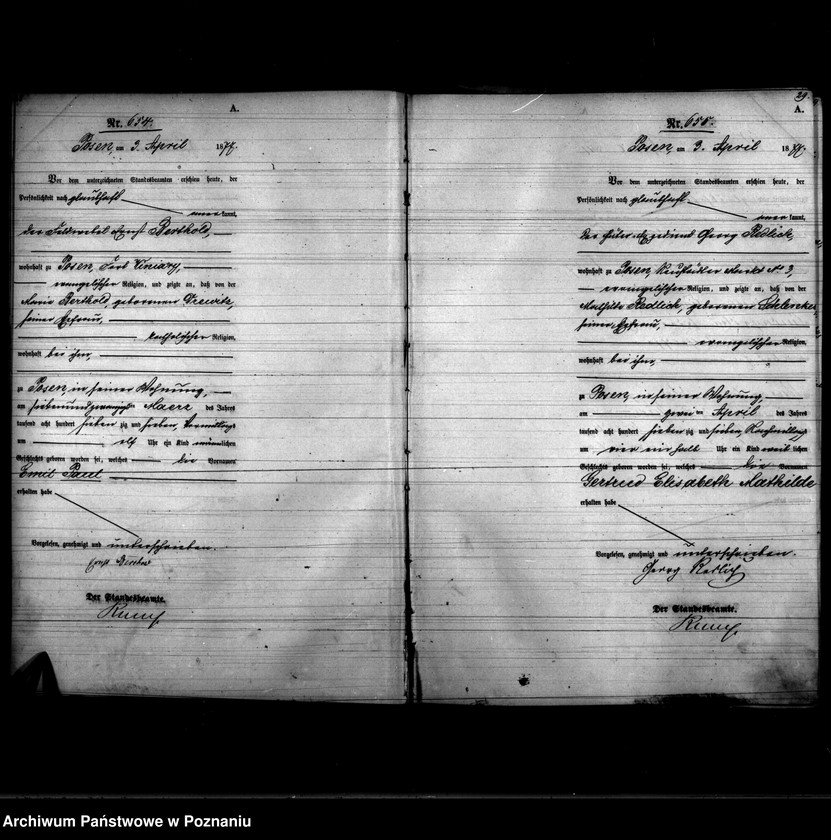 A.
Nr. 654.
Posen, am 3. April 1877.
Vor dem unterzeichneten Standesbeamten erschien heute, der
Persönlichkeit nach glaubhaft
anerkannt,
der Feldwebel Ernst Berthold,
wohnhaft zu Posen, Fort Winiary,
evangelischer Religion, und zeigte an, daß von der
Maria Berthold, geborenen
seiner Ehefrau,
katholischer Religion,
wohnhaft bei ihm,
zu Posen, in seiner Wohnung,
am siebenundzwanzigsten Maerz des Jahres
tausend acht hundert siebenzig und sieben, Vormittags
um elf Uhr ein Kind männlichen
Geschlechts geboren worden sei, welches die Vornamen
Emil Paul
erhalten habe
Vorgelesen, genehmigt und unterschrieben.
Ernst Berthold
Der Standesbeamte.
29.
A.
Nr. 655.
Posen, am 3. April 1877.
Vor dem unterzeichneten Standesbeamten erschien heute, der
Persönlichkeit nach glaubhaft
anerkannt,
der Güter-Expedient Georg Redlich,
wohnhaft zu Posen, Neustädter Markt No 3,
evangelischer Religion, und zeigte an, daß von der
Mathilde Redlich, geborenen
seiner Ehefrau,
evangelischer Religion,
wohnhaft bei ihm,
zu Posen, in seiner Wohnung,
am zwei ten April des Jahres
tausend acht hundert siebenzig und sieben, Nachmittags
um vier einhalb Uhr ein Kind weiblichen
Geschlechts geboren worden sei, welches die Vornamen
Gertrud Elisabeth Mathilde
erhalten habe
Vorgelesen, genehmigt und unterschrieben.
Georg Redlich
Der Standesbeamte.
Archiwum Państwowe w Poznaniu